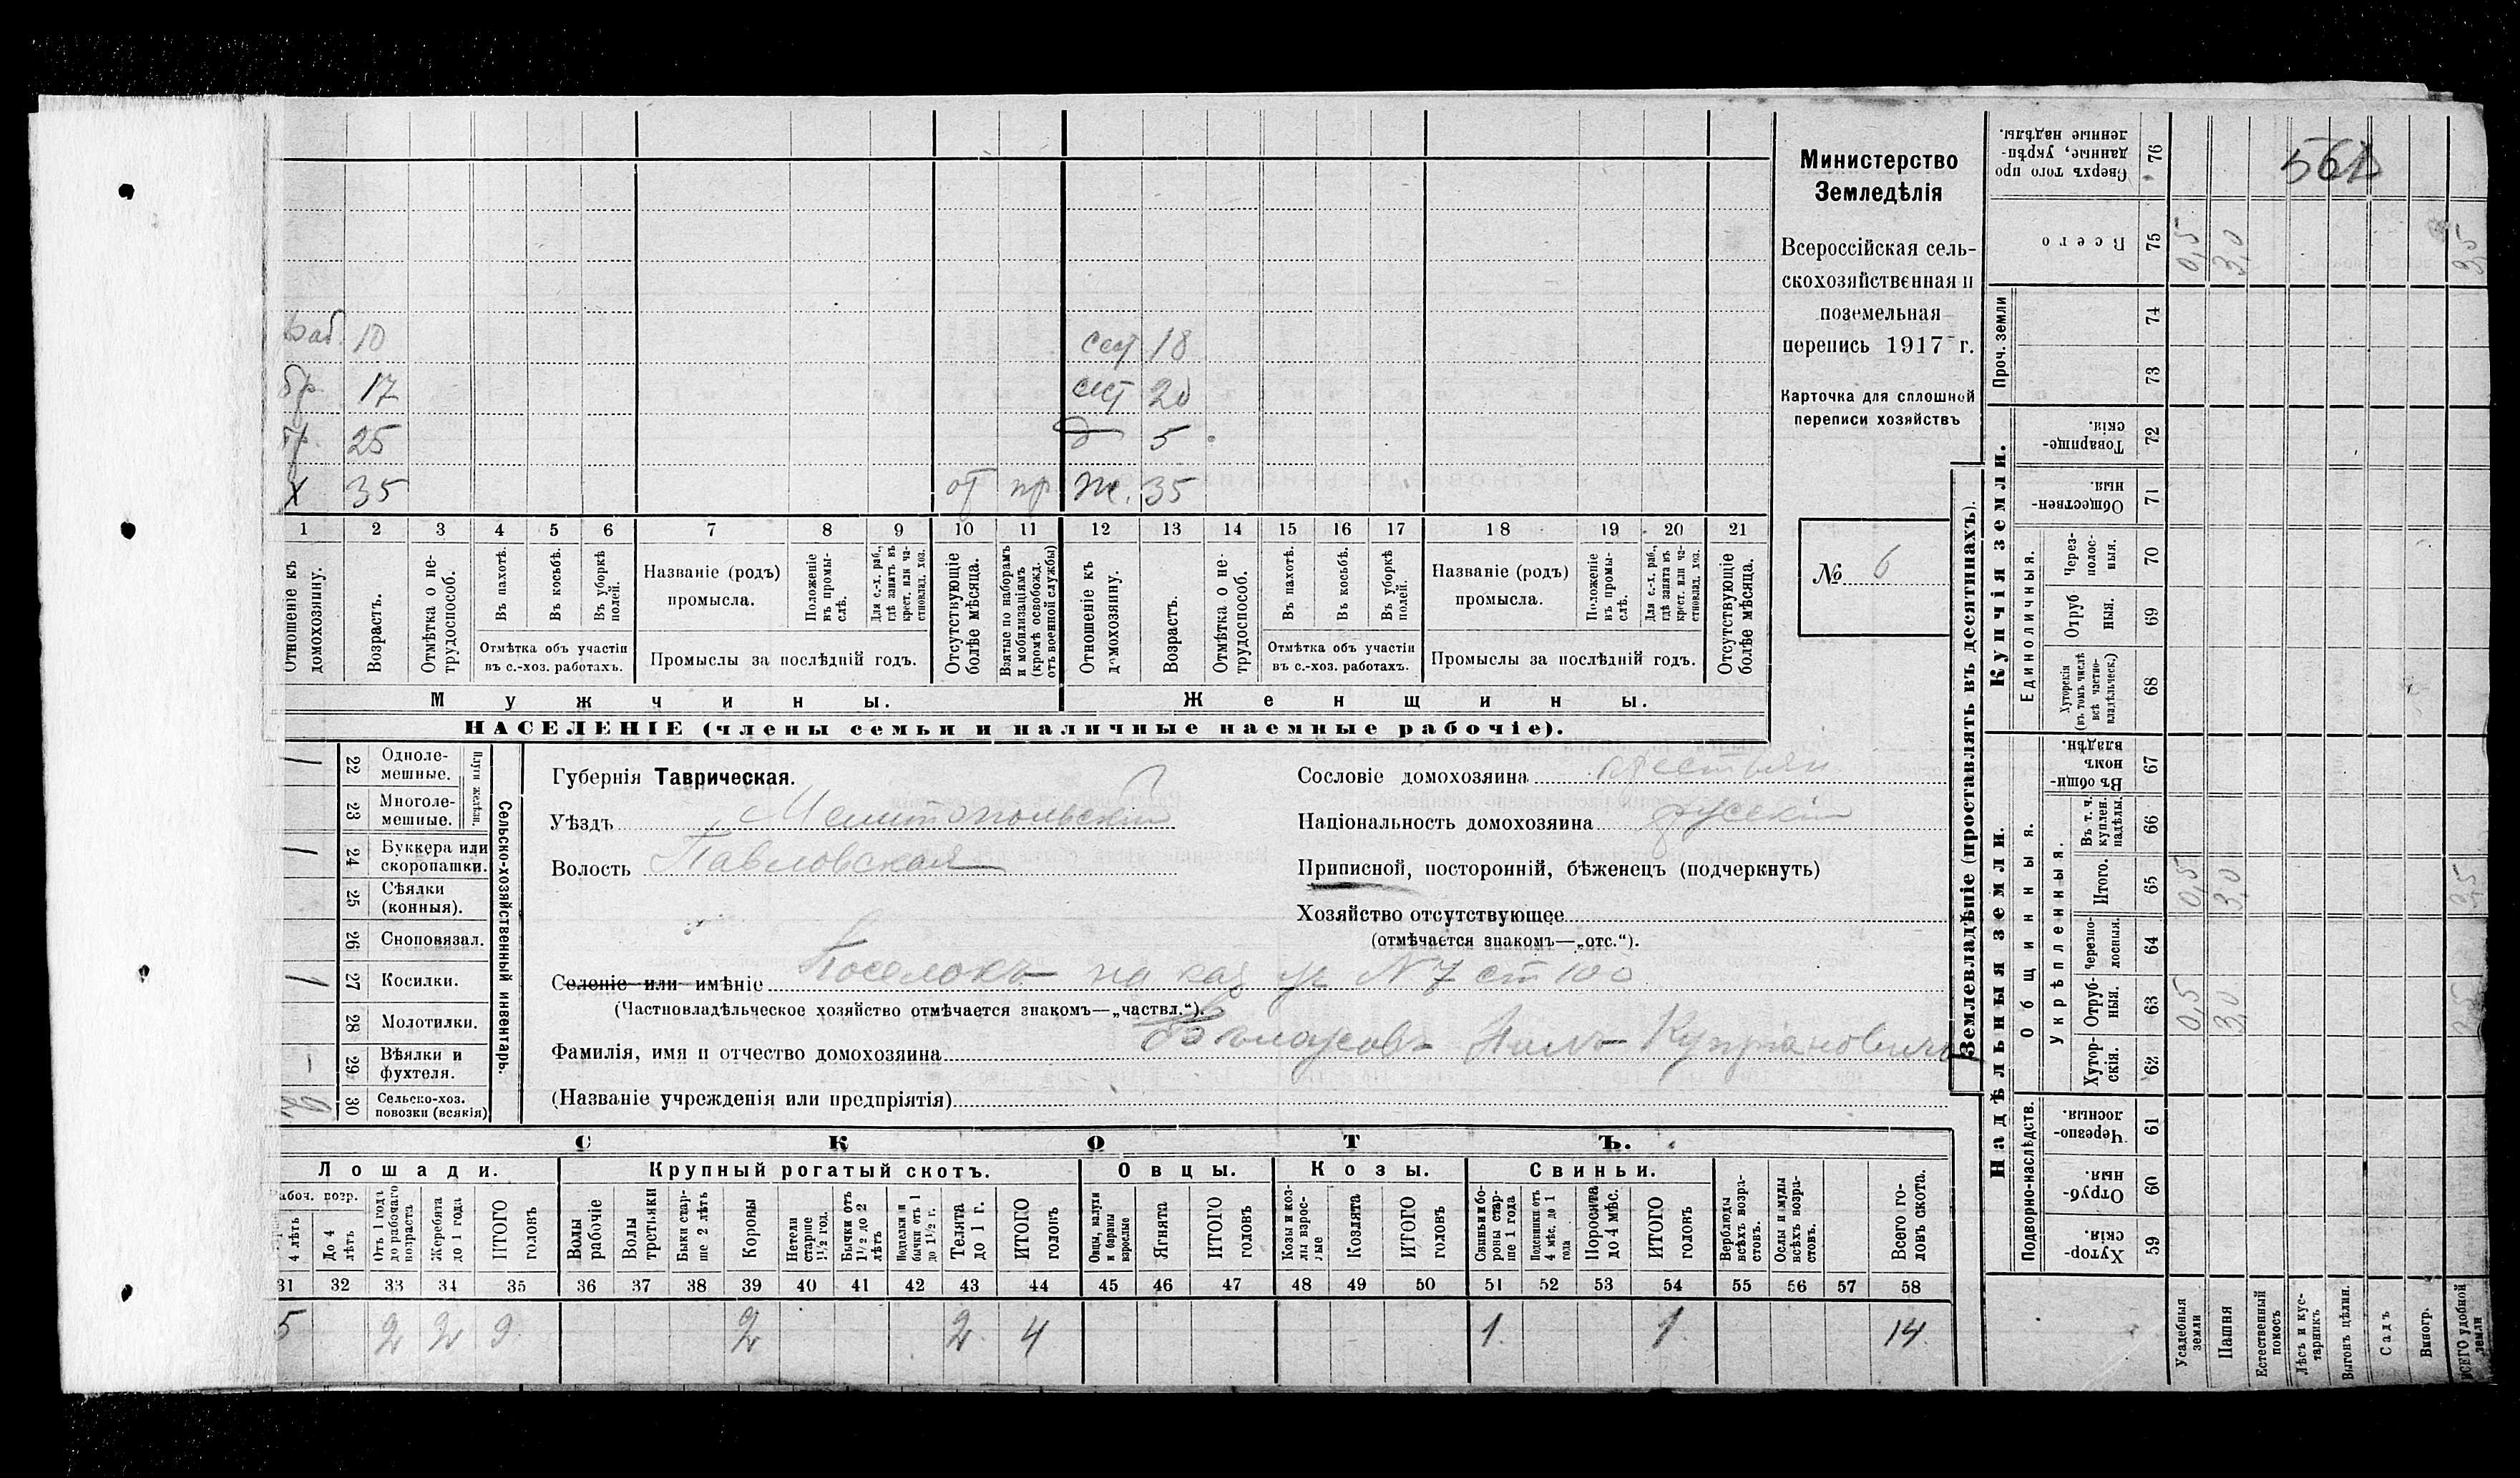 Министерство
Земледѣлія
Всероссійская сель-
скохозяйственная и
поземельная
перепись 1917 г.
Карточка для сплошной
переписи хозяйствъ
№ 6
561
раб. 10
бр. 17
бр. 25
х 35 от пр
сест 18
сест 20
д 5
ж. 35
1 2 3 4 5 6 7 8 9 10 11 12 13 14 15 16 17 18 19 20 21
Отношеніе къ домохозяину.
Возрастъ.
Отмѣтка о не-трудоспособ.
Въ пахотѣ.
Въ косьбѣ.
Въ уборкѣ полей.
Отмѣтка объ участіи
въ с.-хоз. работахъ.
Названіе (родъ)
промысла.
Положеніе въ промы-слѣ.
Для с.-х. раб., гдѣ занятъ въ крест. или ча-стновлад. хоз.
Промыслы за послѣдній годъ.
Отсутствующіе болѣе мѣсяца.
Взятые по наборамъ и мобилизаціямъ (кромѣ освобожд. отъ военной службы)
Отношеніе къ домохозяину.
Возрастъ.
Отмѣтка о не-трудоспособ.
Въ пахотѣ.
Въ косьбѣ.
Въ уборкѣ полей.
Отмѣтка объ участіи
въ с.-хоз. работахъ.
Названіе (родъ)
промысла.
Положеніе въ промы-слѣ.
Для с.-х. раб., гдѣ занята въ крест. или ча-стновлад. хоз.
Промыслы за послѣдній годъ.
Отсутствующіе болѣе мѣсяца.
Мужчины.
Женщины.
НАСЕЛЕНІЕ (члены семьи и наличные наемные рабочіе).
Сельско-хозяйственный инвентарь.
Плуги желѣзн.
22 Одноле-мешные. 1
23 Многоле-мешные.
24 Буккера или скоропашки. 1
25 Сѣялки (конныя).
26 Сноповязал.
27 Косилки. 1
28 Молотилки.
29 Вѣялки и фухтеля.
30 Сельско-хоз. повозки (всякія)
Губернія Таврическая.
Уѣздъ Мелитопольскій
Волость Павловская
Селеніе или имѣніе Поселокъ на каз уч N 7 ст 100
(Частновладѣльческое хозяйство отмѣчается знакомъ—„частвл.“).
Фамилія, имя и отчество домохозяина Купріановичъ
(Названіе учрежденія или предпріятія)
Сословіе домохозяина крестьян
Національность домохозяина русскій
Приписной, посторонній, бѣженецъ (подчеркнуть)
Хозяйство отсутствующее
(отмѣчается знакомъ—„отс.“).
СКОТЪ.
Лошади.
Крупный рогатый скотъ.
Овцы.
Козы.
Свиньи.
4 лѣтъ
До 4 лѣтъ
Отъ 1 года до рабочаго возраста
Жеребята до 1 года
ИТОГО головъ
Волы рабочіе
Волы третьяки
Быки стар-ше 2 лѣтъ
Коровы
Нетели старше 1½ год.
Бычки отъ 1½ до 2 лѣтъ
Подтелки и бычки отъ 1 до 1½ г.
Телята до 1 г.
ИТОГО головъ
Овцы, валухи и бараны взрослые
Ягнята
ИТОГО головъ
Козы и коз-лы взрос-лые
Козлята
ИТОГО головъ
Свиньи и бо-ровы стар-ше 1 года
Подсвинки отъ 4 мѣс. до 1 года
Поросята до 4 мѣс.
ИТОГО головъ
Верблюды всѣхъ возра-стовъ.
Ослы и мулы всѣхъ возра-стовъ.
Всего го-ловъ скота.
31 32 33 34 35 36 37 38 39 40 41 42 43 44 45 46 47 48 49 50 51 52 53 54 55 56 57 58
5 2 2 9 2 2 4 1 1 14
Землевладѣніе (проставлять въ десятинахъ).
Надѣльныя земли.
Купчія земли.
Проч. земли
Подворно-наслѣдств.
Общинныя.
Укрѣпленныя.
Единоличныя.
Хутор-скія. 59
Отруб-ныя. 60
Черезпо-лосныя. 61
Хутор-скія. 62
Отруб-ныя. 63
Черезпо-лосныя. 64
Итого. 65
Въ т. ч. куплен. надѣлы. 66
Въ общин-номъ владѣн. 67
Хуторскія (въ томъ числѣ всѣ частно-владѣльческ.) 68
Отруб ныя. 69
Через-полос-ныя. 70
Обществен-ныя. 71
Товарище-скія. 72
73
74
Всего 75
Сверхъ того про данные, укрѣп-ленные надѣлы. 76
Усадебныя земли 0,5 0,5 0,5
Пашня 3,0 3,0 3,0
Естественный покосъ
Лѣсъ и кус-тарникъ
Выгонъ цѣлин.
Садъ
Виногр.
ВСЕГО удобной земли 3,5 3,5 3,5